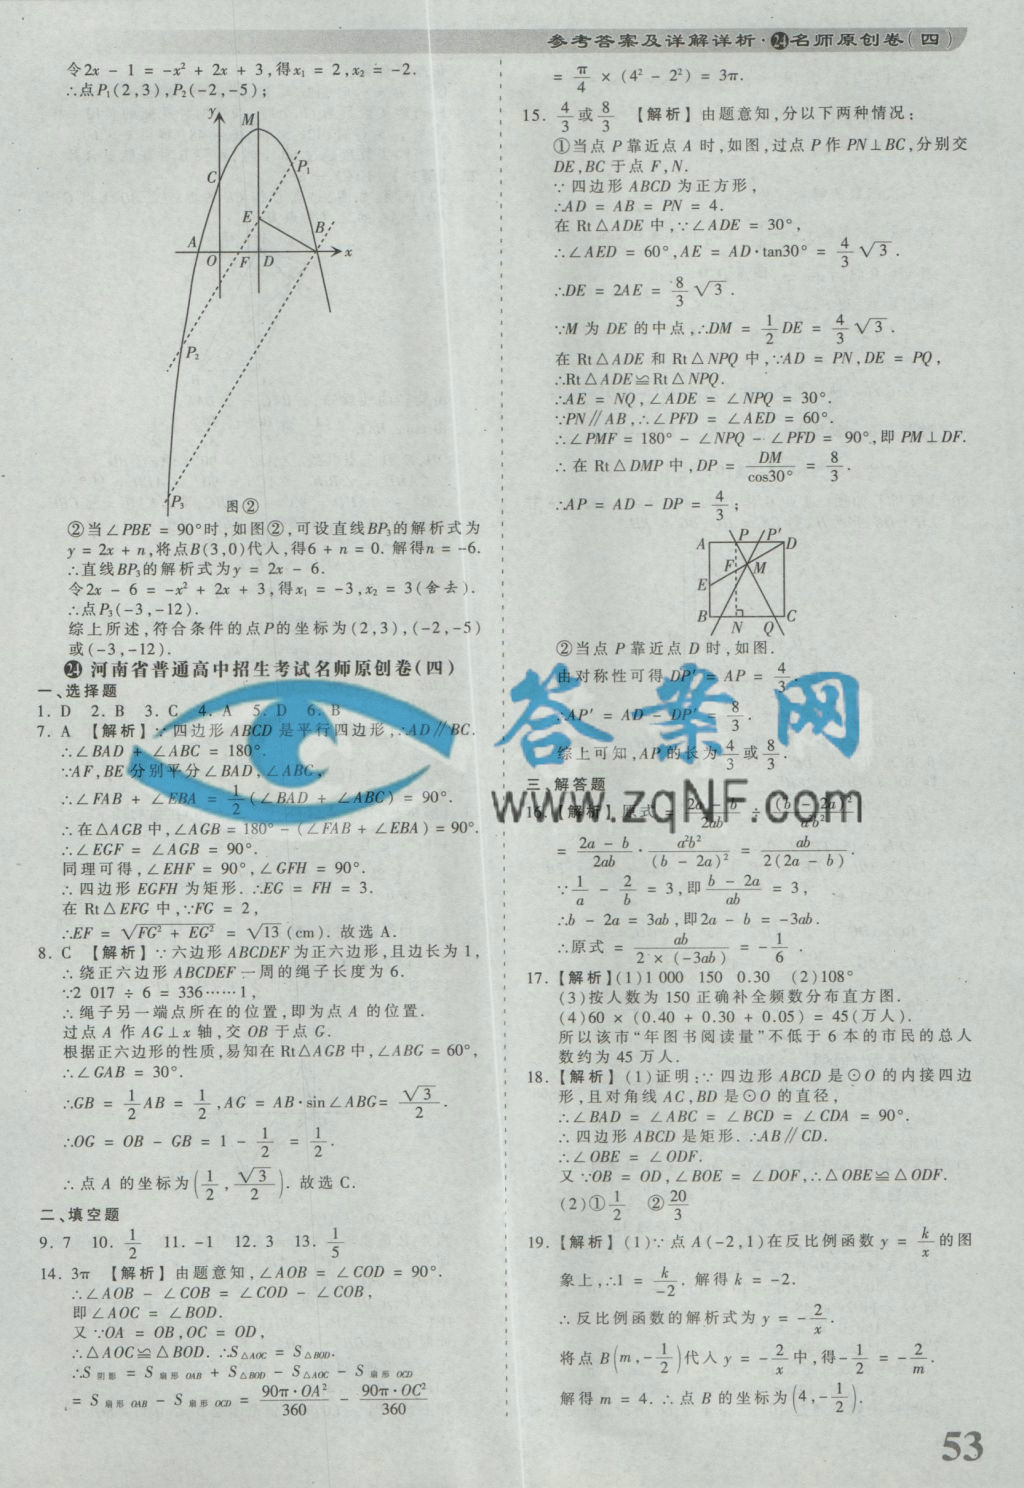 参考答案及详解详析·24名师原创卷(四)
令2x - 1 = -x² + 2x + 3,得x₁ = 2,x₂ = -2.
∴点P₁(2,3),P₂(-2,-5);
y
M
P₁
C
E
B
A
O F D x
P₂
P₃
图②
②当∠PBE = 90°时,如图②,可设直线BP₃的解析式为
y = 2x + n,将点B(3,0)代人,得6 + n = 0. 解得n = -6.
∴直线BP₃的解析式为y = 2x - 6.
令2x - 6 = -x² + 2x + 3,得x₁ = -3,x₂ = 3(舍去).
∴点P₃(-3,-12).
综上所述,符合条件的点P的坐标为(2,3),(-2,-5)
或(-3,-12).
24 河南省普通高中招生考试名师原创卷(四)
一、选择题
1. D 2. B 3. C 4. A 5. D 6. B
7. A 【解析】∵四边形 ABCD 是平行四边形,∴AD∥BC.
∴∠BAD + ∠ABC = 180°.
∵AF,BE 分别平分∠BAD,∠ABC,
∴∠FAB + ∠EBA = 1/2(∠BAD + ∠ABC) = 90°.
∴在△AGB 中,∠AGB = 180° - (∠FAB + ∠EBA) = 90°.
∴∠EGF = ∠AGB = 90°.
同理可得,∠EHF = 90°,∠GFH = 90°.
∴四边形 EGFH 为矩形. ∴EG = FH = 3.
在 Rt△EFG 中,∵FG = 2,
∴EF = √(FG² + EG²) = √13 (cm). 故选 A.
8. C 【解析】∵六边形 ABCDEF 为正六边形,且边长为 1,
∴绕正六边形 ABCDEF 一周的绳子长度为 6.
∵2 017 ÷ 6 = 336……1,
∴绳子另一端点所在的位置,即为点 A 的位置.
过点 A 作 AG⊥x 轴,交 OB 于点 G.
根据正六边形的性质,易知在 Rt△AGB 中,∠ABG = 60°,
∴∠GAB = 30°.
∴GB = 1/2 AB = 1/2, AG = AB·sin∠ABG = √3/2.
∴OG = OB - GB = 1 - 1/2 = 1/2.
∴点 A 的坐标为(1/2, √3/2). 故选 C.
二、填空题
9. 7 10. 1/2 11. -1 12. 3 13. 1/5
14. 3π 【解析】由题意知,∠AOB = ∠COD = 90°.
∴∠AOB - ∠COB = ∠COD - ∠COB,
即∠AOC = ∠BOD.
又∵OA = OB,OC = OD,
∴△AOC≌△BOD. ∴S△AOC = S△BOD.
∴S阴影 = S扇形OAB + S△BOD - S△AOC - S扇形OCD
= S扇形OAB - S扇形OCD = 90π·OA²/360 - 90π·OC²/360
= π/4 × (4² - 2²) = 3π.
15. 4/3或8/3 【解析】由题意知,分以下两种情况:
①当点 P 靠近点 A 时,如图,过点 P 作 PN⊥BC,分别交
DE,BC 于点 F,N.
∵四边形 ABCD 为正方形,
∴AD = AB = PN = 4.
在 Rt△ADE 中,∵∠ADE = 30°,
∴∠AED = 60°,AE = AD·tan30° = 4/3 √3.
∴DE = 2AE = 8/3 √3.
∵M 为 DE 的中点,∴DM = 1/2 DE = 4/3 √3.
在 Rt△ADE 和 Rt△NPQ 中,∵AD = PN,DE = PQ,
∴Rt△ADE≌Rt△NPQ.
∴AE = NQ,∠ADE = ∠NPQ = 30°.
∵PN∥AB,∴∠PFD = ∠AED = 60°.
∴∠PMF = 180° - ∠NPQ - ∠PFD = 90°,即 PM⊥DF.
∴在 Rt△DMP 中,DP = DM/cos30° = 8/3.
∴AP = AD - DP = 4/3;
P P′
A D
F M
E
B N Q C
②当点 P 靠近点 D 时,如图,
由对称性可得 DP′ = AP = 4/3.
∴AP′ = AD - DP′ = 8/3.
综上可知,AP 的长为4/3或8/3.
答案网
www.zqNF.com
三、解答题
16. 【解析】原式 = (2a - b)/2ab ÷ (b - 2a)²/a²b²
= (2a - b)/2ab · a²b²/(b - 2a)² = ab/2(2a - b)
∵1/a - 2/b = 3,即(b - 2a)/ab = 3,
∴b - 2a = 3ab,即2a - b = -3ab.
∴原式 = ab/(2 × (-3ab)) = -1/6.
17. 【解析】(1)1 000 150 0.30 (2)108°
(3)按人数为 150 正确补全频数分布直方图.
(4)60 × (0.40 + 0.30 + 0.05) = 45(万人).
所以该市“年图书阅读量”不低于 6 本的市民的总人
数约为 45 万人.
18. 【解析】(1)证明:∵四边形 ABCD 是⊙O 的内接四边
形,且对角线 AC,BD 是⊙O 的直径,
∴∠BAD = ∠ABC = ∠BCD = ∠CDA = 90°.
∴四边形 ABCD 是矩形. ∴AB∥CD.
∴∠OBE = ∠ODF.
又∵OB = OD,∠BOE = ∠DOF,∴△OBE≌△ODF.
(2)①1/2 ②20/3
19. 【解析】(1)∵点 A(-2,1)在反比例函数 y = k/x 的图
象上,∴1 = k/-2. 解得 k = -2.
∴反比例函数的解析式为 y = -2/x.
将点 B(m, -1/2)代人 y = -2/x 中,得 -1/2 = -2/m.
解得 m = 4. ∴点 B 的坐标为(4, -1/2).
53